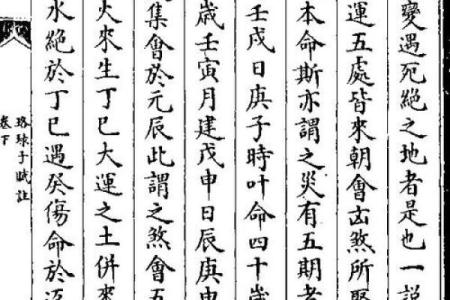 變遇死絶之地者是也一説
運五處皆來朝會凶煞所聚
本命斯亦謂之災有五期者
壬戌日庚子時叶命四十歲
歲壬寅月建戊申日辰庚申
集會於元辰此謂之煞會五
火來生丁巳大運之土併來
水絶於丁巳遇癸傷命於
珞琭子賦註
卷下